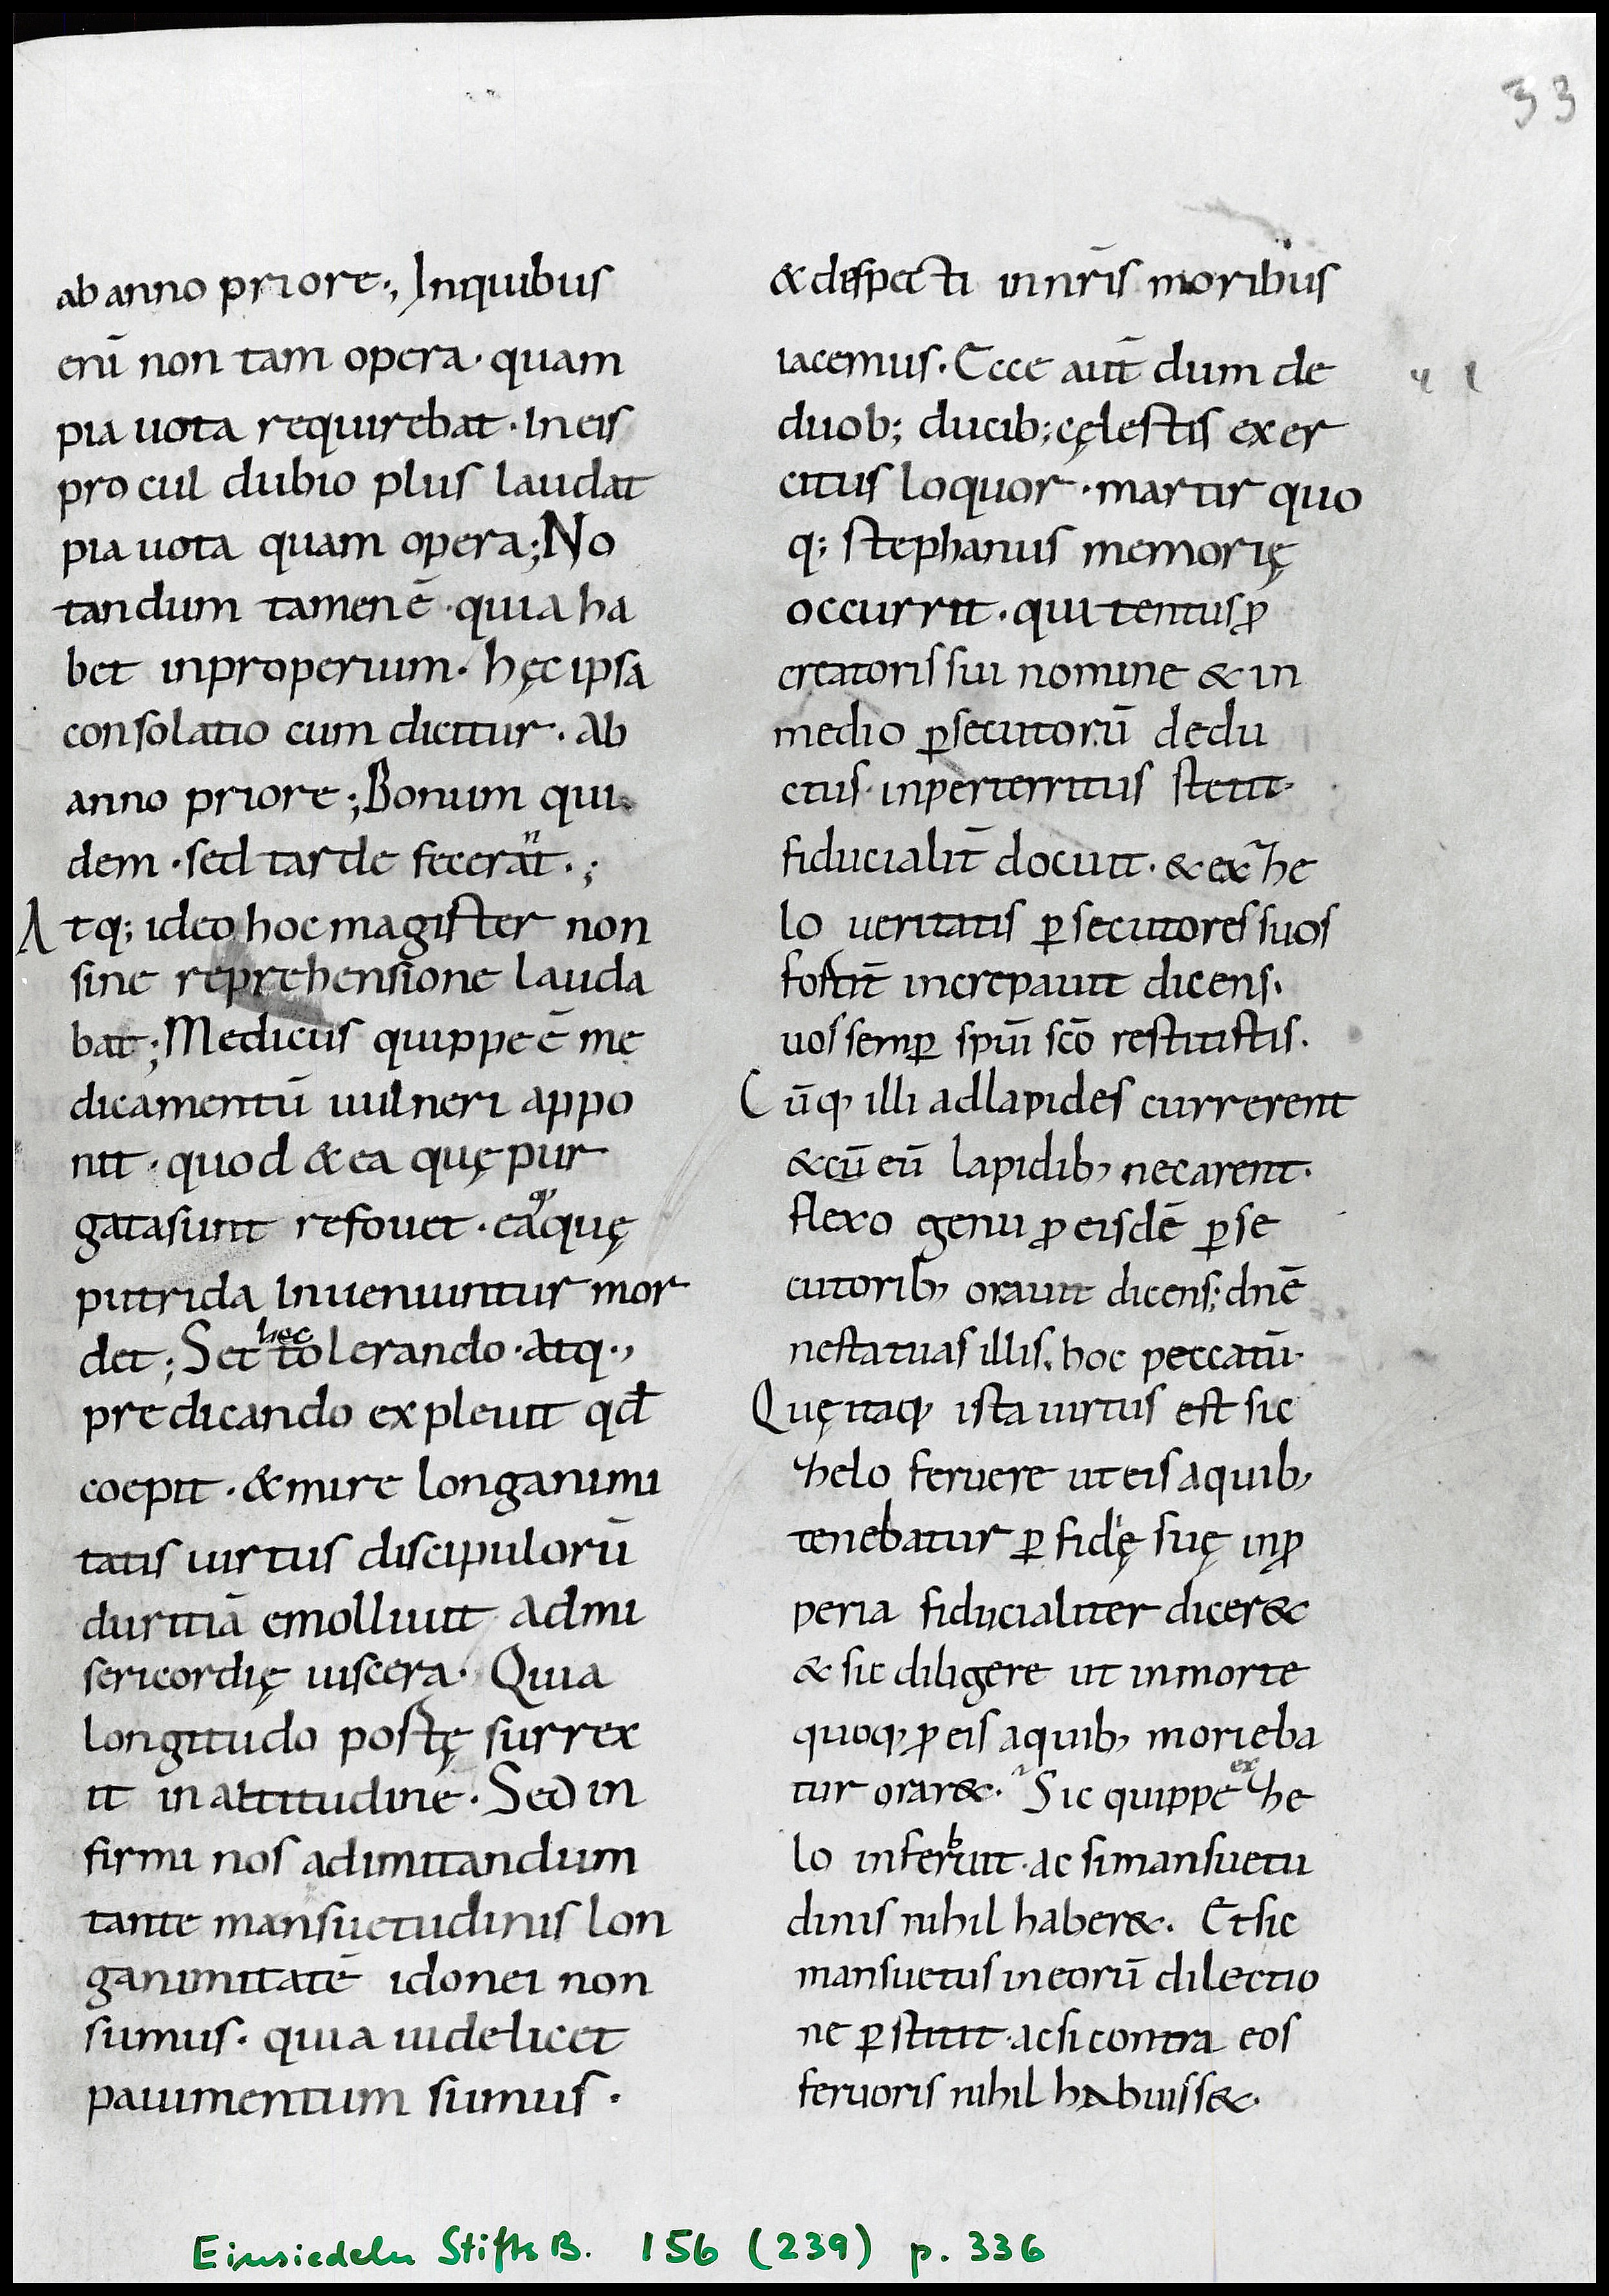 33
ab anno priore., Inquibus
eni̅ non tam opera · quam
pia uota requirebat · In eis
pro cul dubio plus laudat
pia uota quam opera; No
tandum tamen e̅ · quia ha
bet inproperium · hęc ipsa
consolatio cum dicitur · Ab
anno priore; Bonum qui
dem · sed tarde fecerāt · ;
Atq; ideo hoc magister non
sine reprehensione lauda
bat; Medicus quippe e̅ me
dicamentu̅ uulneri appo
nit · quod & ea quę pur
gata sunt refouet · ea quę
putrida Inueniuntur mor
det; Set hec tolerando · atq.,
predicando expleuit qd̅
coepit · & mire longanimi
tatis uirtus discipuloru̅
duritia̅ emolliuit Admi
sericordię uiscera · Quia
longitudo postę surrex
it in altitudine · Sed in
firmi nos adimitandum
tante mansuetudinis lon
ganimitate̅ idonei non
sumus · quia uidelicet
pauimentum sumus ·
& despecti in nr̅is moribus
iacemus · Ecce aut̅ dum de
duob; ducib; cęlestis exer
citus loquor · martir quo
q; stephanus memorię
occurrit · qui tentus ꝓ
creatoris sui nomine & in
medio ꝑsecutoru̅ dedu
ctus · inperterritus stetit ·
fiducialit̅ docuit · & ex he
lo ueritatis ꝑsecutores suos
fortit̅ increpauit dicens ·
uos semꝑ spu̅i sco̅ restitistis ·
Cu̅q, illi ad lapides currerent
& cu̅ eu̅ lapidib, necarent ·
flexo genu ꝓ eisde̅ ꝑse
cutorib, orauit dicens; dne̅
ne statuas illis · hoc peccatu̅ ·
Quę itaq, ista uirtus est sic
helo feruere ut eis a quib,
tenebatur ꝑfidię suę inꝓ
peria fiducialiter dicer&
& sic diligere ut in morte
quoq, ꝓ eis a quib, morieba
tur orar& · Sic quippe ex he
lo inferbuit · ac si mansuetu
dinis nihil haber& · Et sic
mansuetus in eoru̅ dilectio
ne ꝑstitit · ac si contra eos
feruoris nihil habuiss& ·
Einsiedeln Stifts B. 156 (239) p. 336